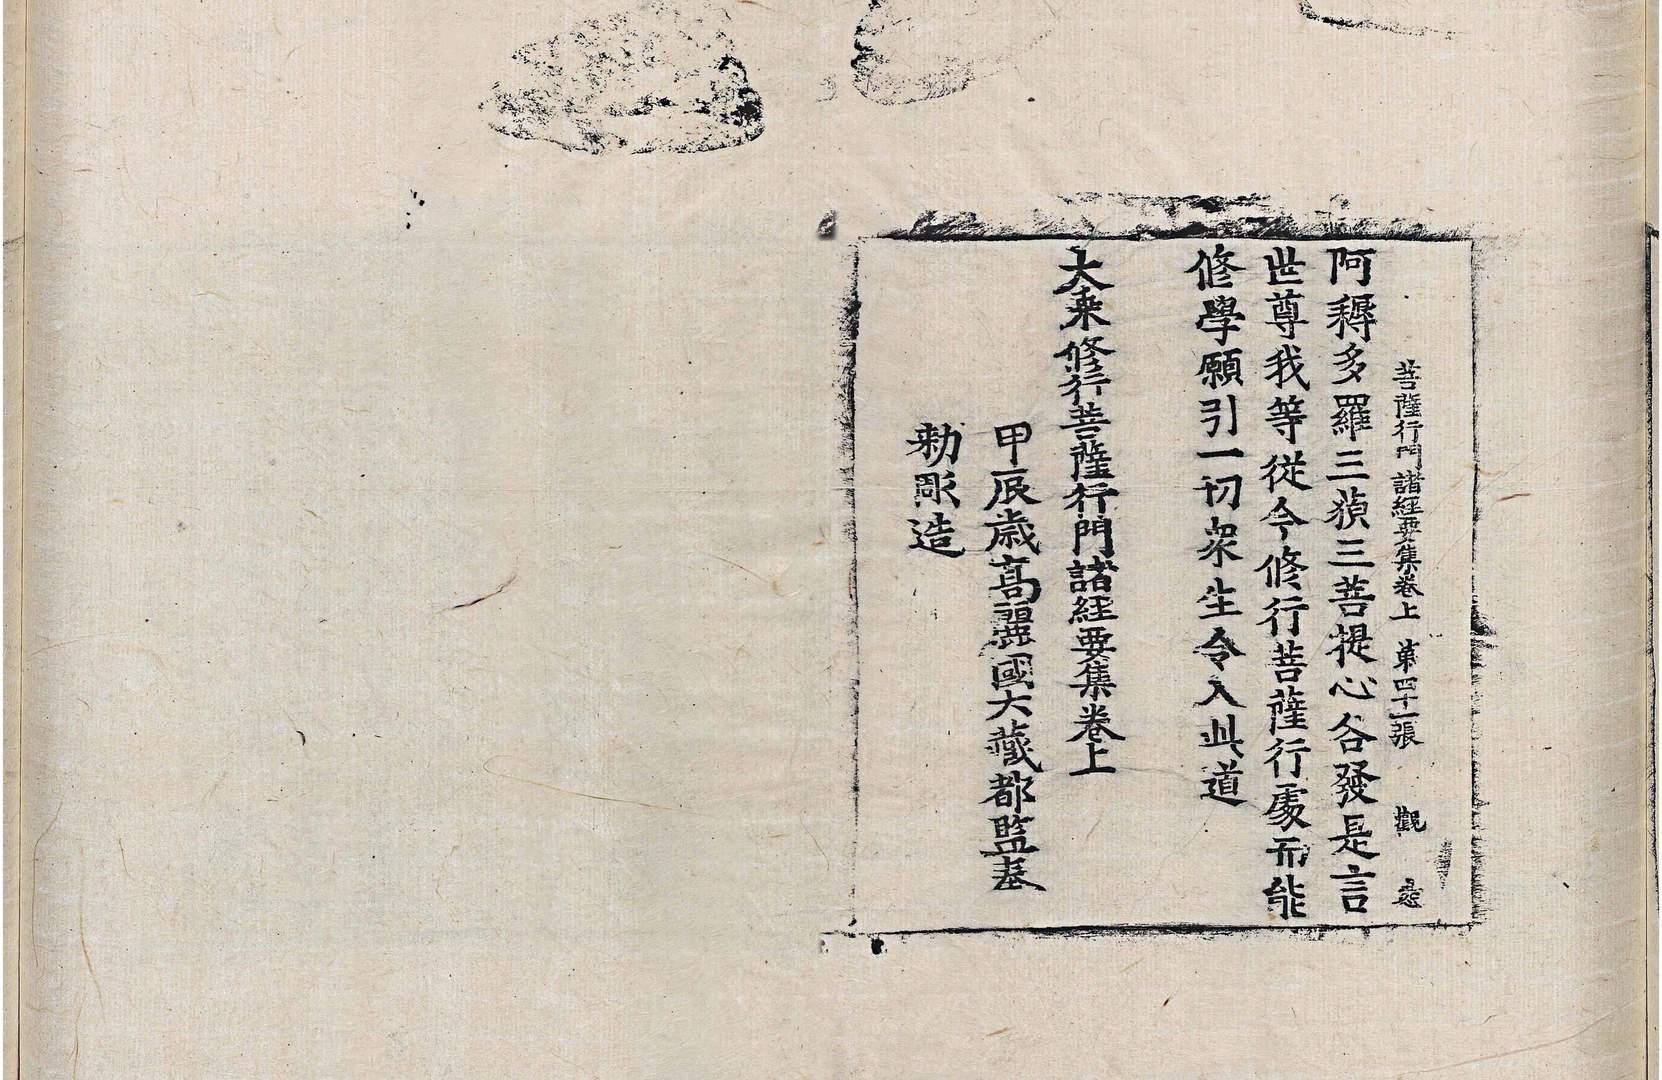 菩薩行門諸經要集卷上 第四十一張 觀
阿耨多羅三藐三菩提心各發是言
世尊我等從今修行菩薩行處而能
修學願引一切衆生令入此道
大乘修行菩薩行門諸經要集卷上
甲辰歳高麗國大藏都監奉
勅彫造